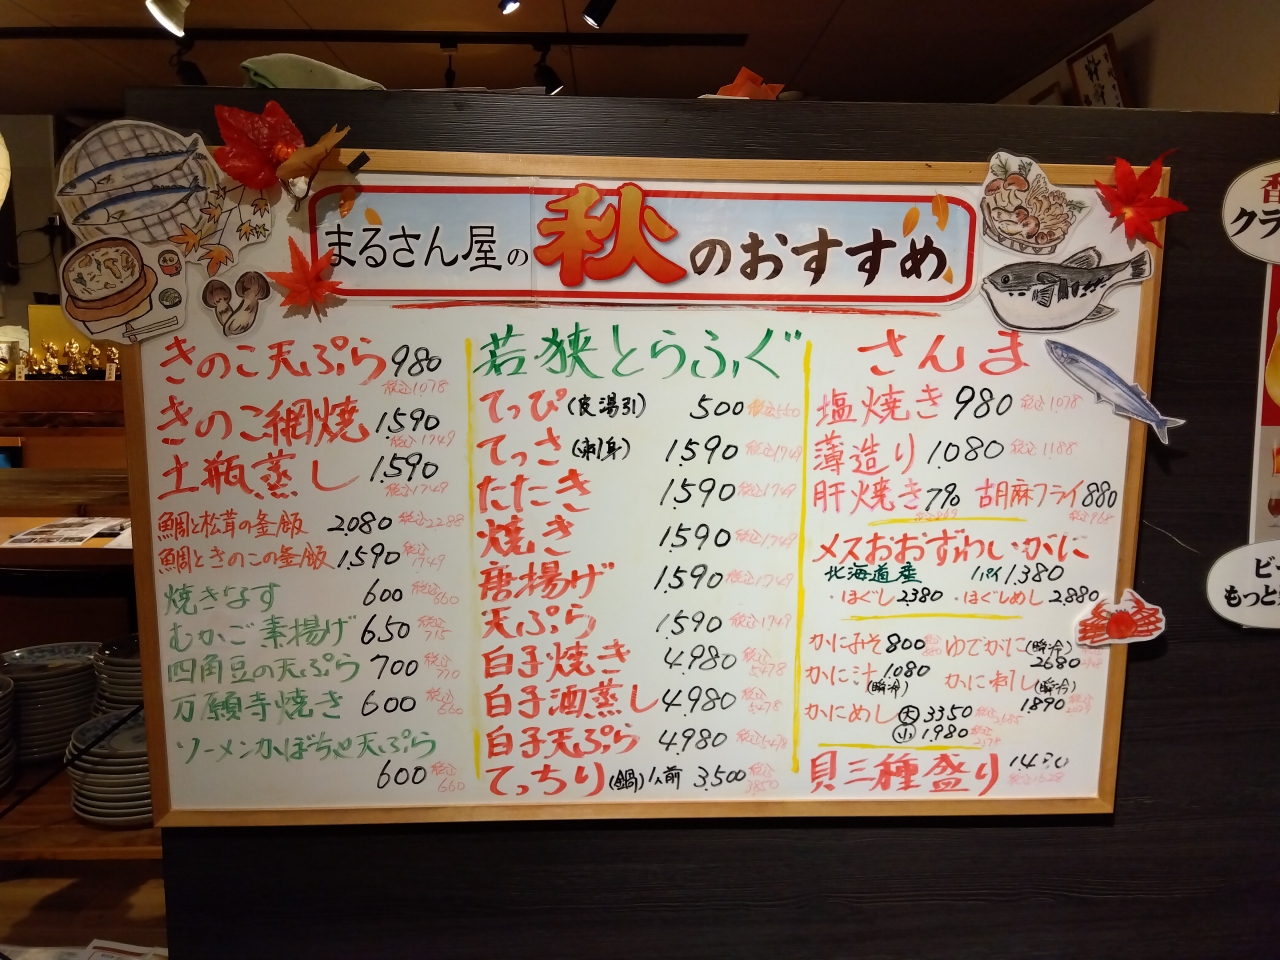 まるさん屋の秋のおすすめ
きのこ天ぷら 980 税込1078
きのこ網焼 1,590 税込1749
土瓶蒸し 1,590 税込1749
鯛と松茸の釜飯 2,080 税込2288
鯛ときのこの釜飯 1,590 税込1749
焼きなす 600 税込660
むかご素揚げ 650 税込715
四角豆の天ぷら 700 税込770
万願寺焼き 600 税込660
ソーメンかぼちゃ天ぷら
600 税込660
若狭とらふぐ
てっぴ(皮湯引) 500 税込550
てっさ(刺身) 1,590 税込1749
たたき 1,590 税込1749
焼き 1,590 税込1749
唐揚げ 1,590 税込1749
天ぷら 1,590 税込1749
白子焼き 4,980 税込5478
白子酒蒸し 4,980 税込5478
白子天ぷら 4,980 税込5478
てっちり(鍋)1人前 3,500 税込3850
さんま
塩焼き 980 税込1078
薄造り 1,080 税込1188
肝焼き 790 胡麻フライ 880
税込968
メスおおずわいがに
北海道産 1パイ 1,380
・ほぐし 2,380 ・ほぐしめし 2,880
かにみそ 800 ゆでがに(瞬冷)
2680
かに汁 1,080 かに刺し(瞬冷)
(瞬冷) 1,890
かにめし 大 3350
小 1,980
貝三種盛り
クラ
ビー
もっと